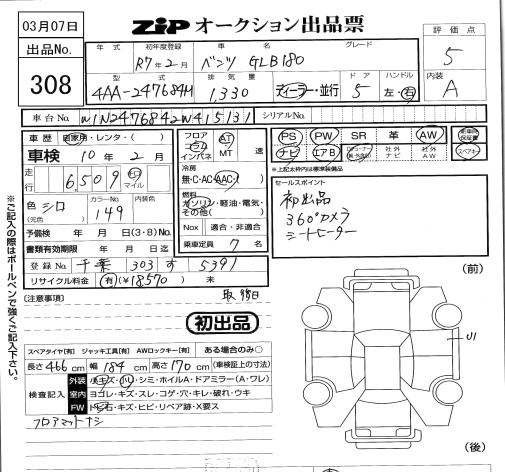 03月07日
出品No.
308
ZiP オークション出品票
年式 初年度登録 車名 グレード
R7年2月 ベンツ GLB180
型式 排気量 ドア ハンドル
4AA-247684M 1,330 ディーラー・並行 5 左・右
評価点
5
内装
A
車台No. W1N2476842W415131 シリアルNo.
車歴 自家用・レンタ・( )
車検 10年2月
走行 6,509 Km マイル
色 シロ (元色) カラーNo. 149 内装色
予備検 年 月 日(3・8)
書類有効期限 年 月 日迄
登録No. 千葉 303 す 5391
リサイクル料金 有(¥18570) 未
フロア コラム インパネ AT MT 速
冷房
無・C・AC・AAC
燃料
ガソリン・軽油・電気・その他( )
Nox 適合・非適合
乗車定員 7名
PS PW SR 革 AW 新車時保証書
ナビ エアB 社外ナビ 社外AW スペアキー
*上記太枠内は標準装備品
セールスポイント
初出品
360°カメラ
シートヒーター
(注意事項)
初出品
スペアタイヤ[有] ジャッキ工具[有] AWロックキー[有] ある場合のみ○
長さ466cm 幅184cm 高さ170cm (車検証上の寸法)
検査記入
外装 小キズ・小凹・シミ・ホイルA・ドアミラー(A・ワレ)
室内 ヨゴレ・キズ・スレ・コゲ・穴・キレ・破れ・ウキ
FW トビ石・キズ・ヒビ・リペア跡・X要ス
フロアマットナシ
(前)
U1
(後)
※ご記入の際はボールペンで強くご記入下さい。